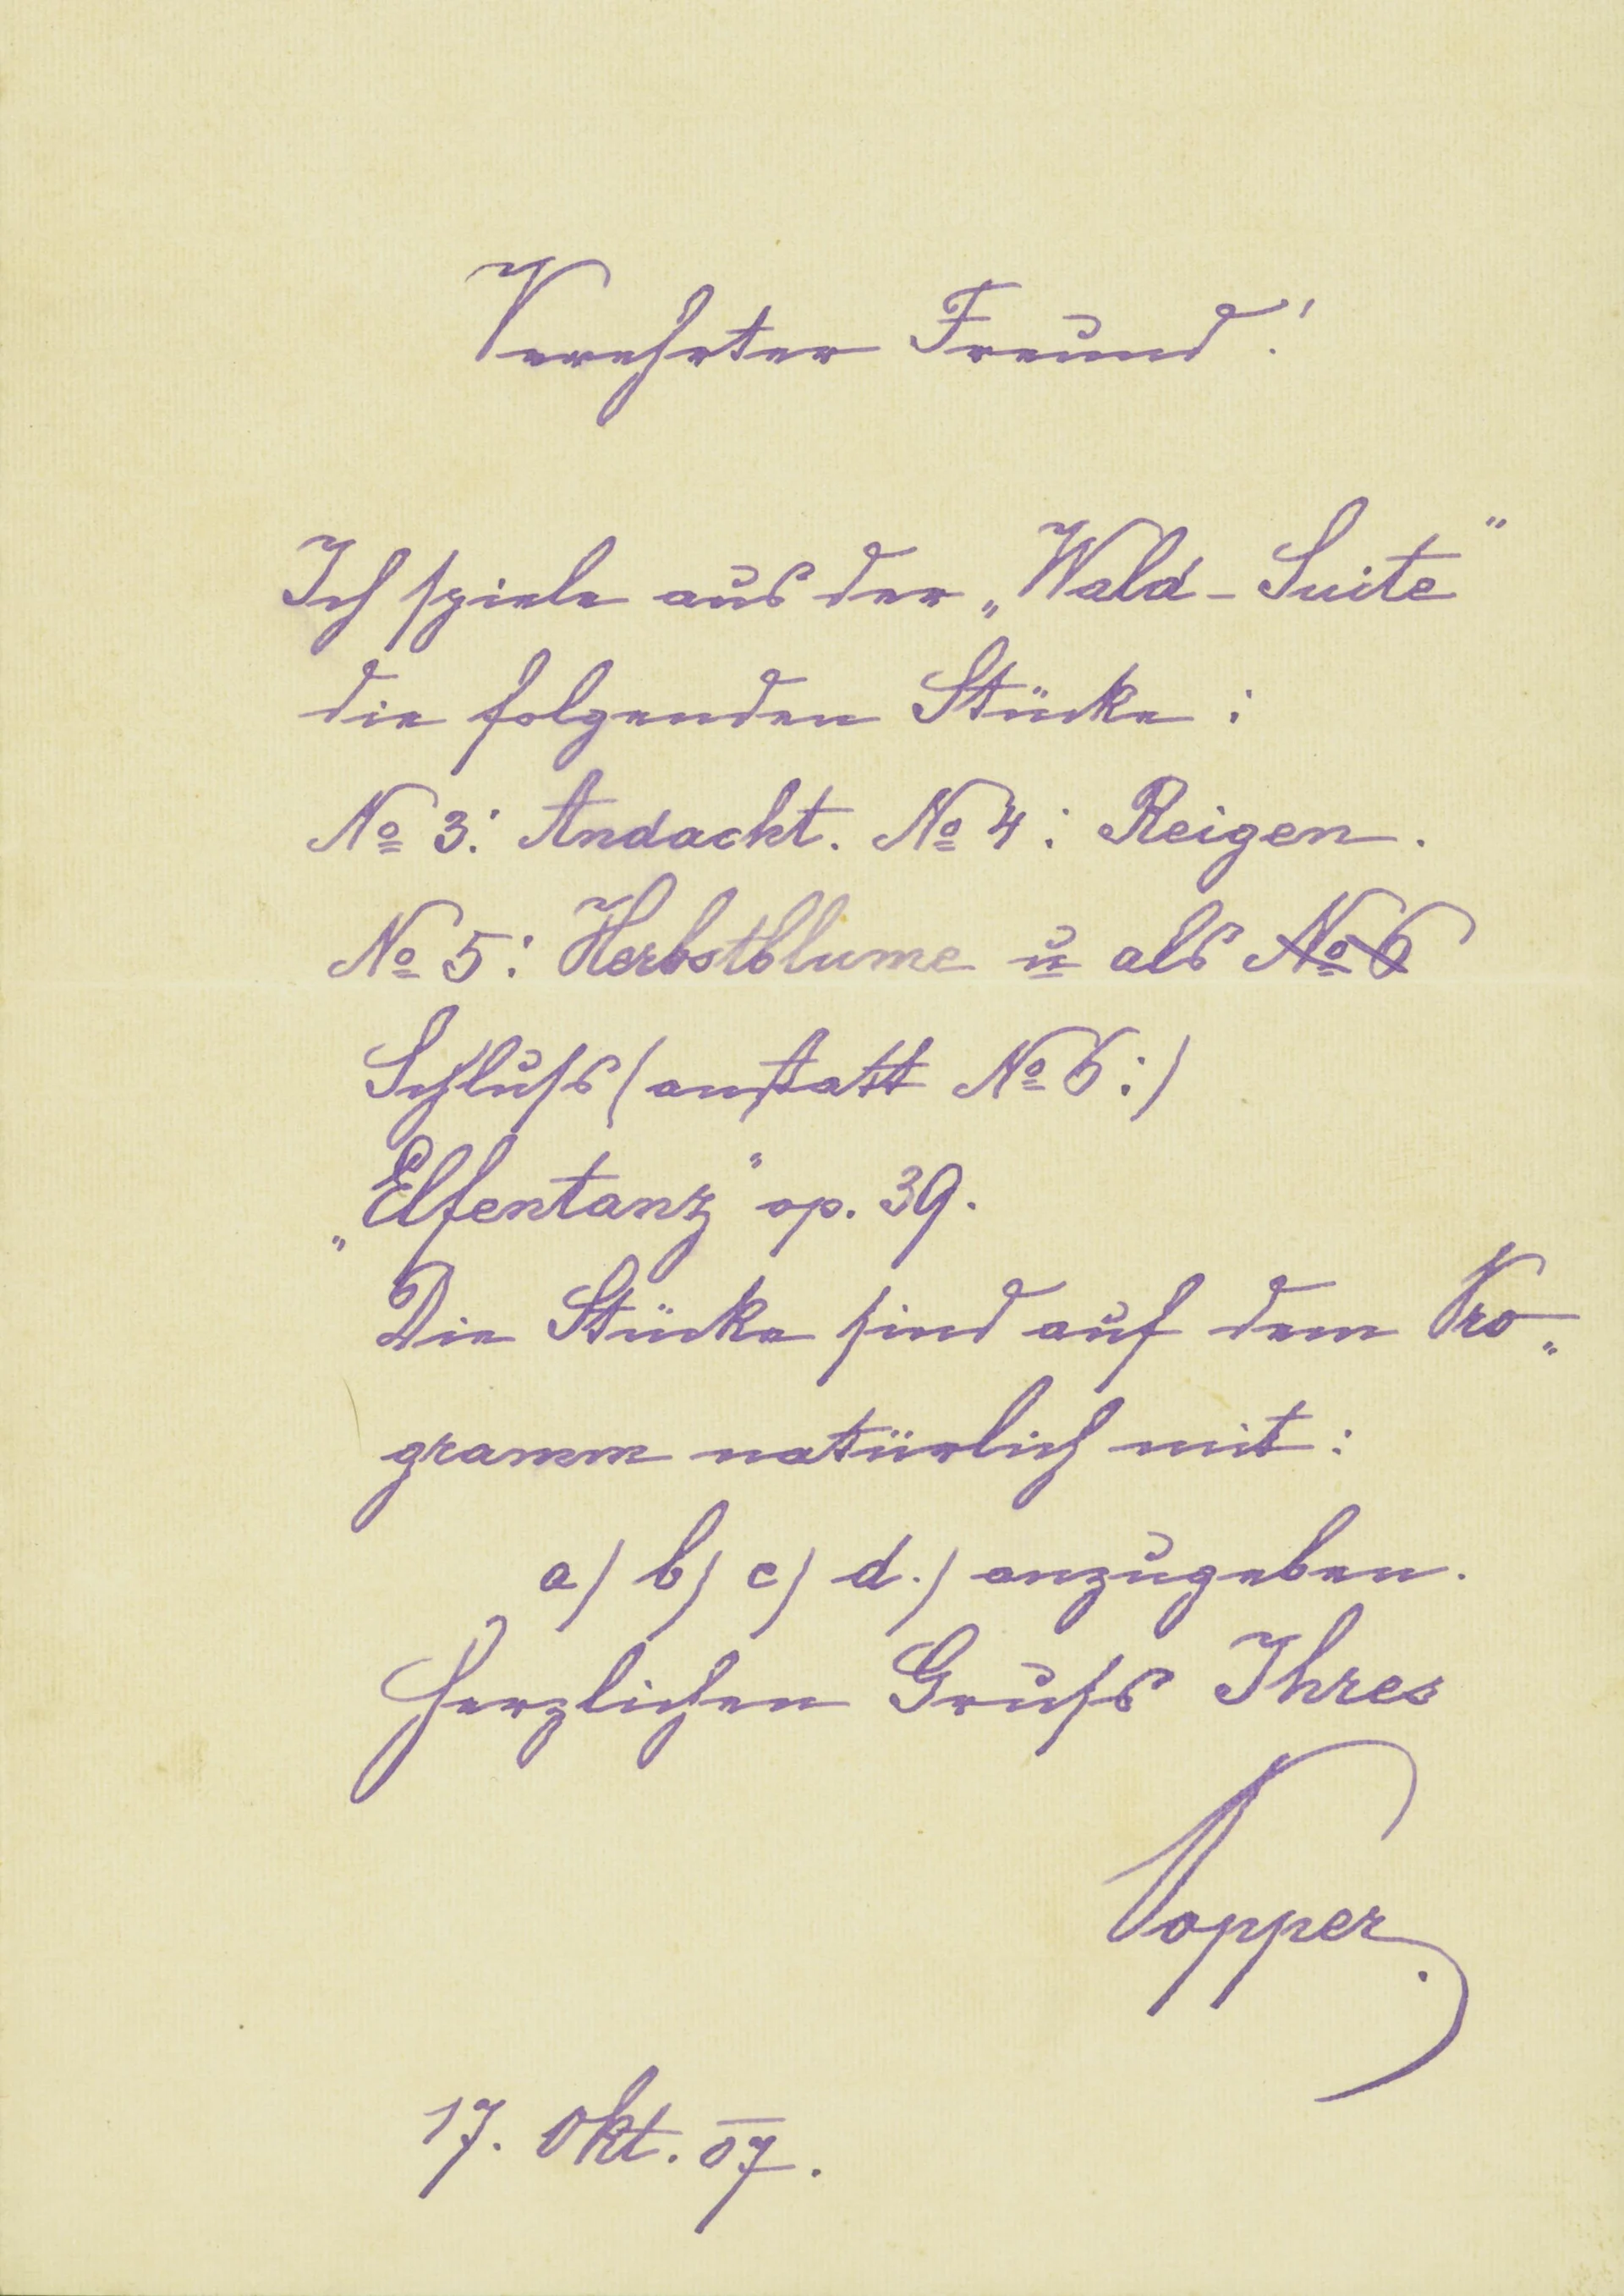 Verehrter Freund!
Ich spiele aus der „Wald-Suite"
die folgenden Stücke:
No 3: Andacht. No 4: Reigen.
No 5: Herbstblume u als No 6
Schluss (anstatt No 6:)
„Elfentanz" op. 39.
Die Stücke sind auf dem Pro„
gramm natürlich mit:
a) b) c) d.) anzugeben.
Herzlichen Gruss Ihres
Popper.
17. Okt. 07.